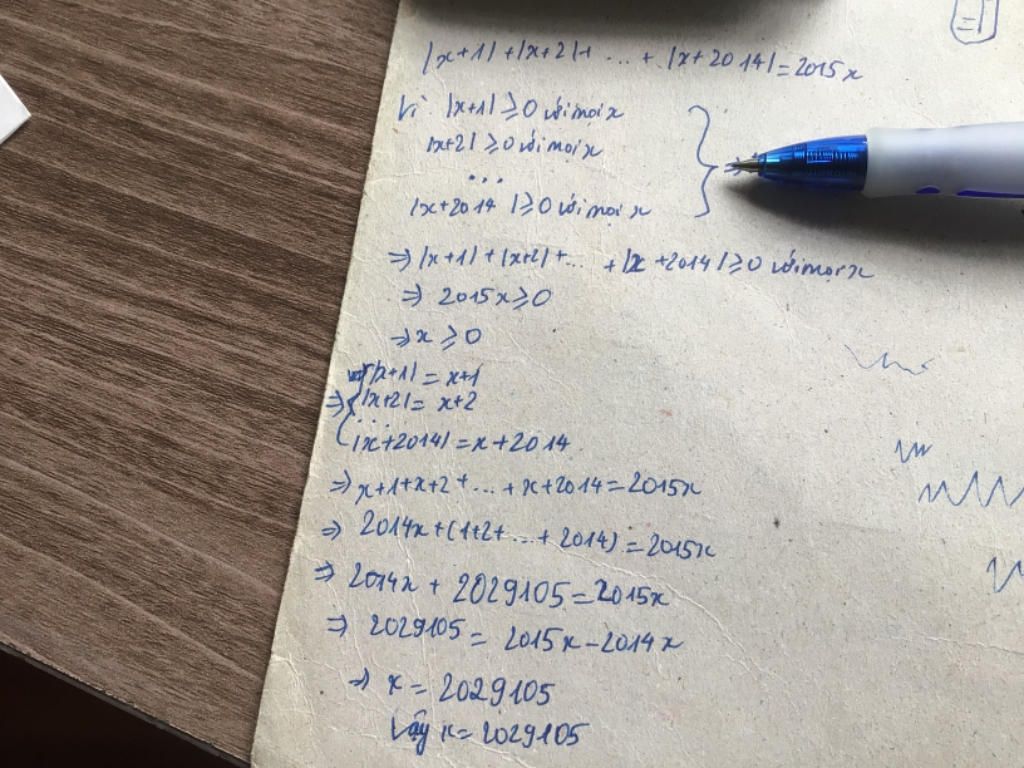 |x+1|+|x+2|+ ... + |x+2014|=2015x
Vì |x+1| ≥0 với mọi x
|x+2| ≥0 với mọi x
...
|x+2014 |≥0 với mọi x
⇒|x+1|+|x+2|+... +|x+2014|≥0 với mọi x
⇒ 2015x≥0
⇒x ≥0
|x+1| = x+1
⇒ |x+2|= x+2
...
|x+2014|=x+2014
⇒x+1+x+2+...+x+2014=2015x
⇒ 2014x+(1+2+...+2014)=2015x
⇒ 2014x + 2029105=2015x
⇒ 2029105= 2015x-2014x
⇒ x = 2029105
Vậy x=2029105